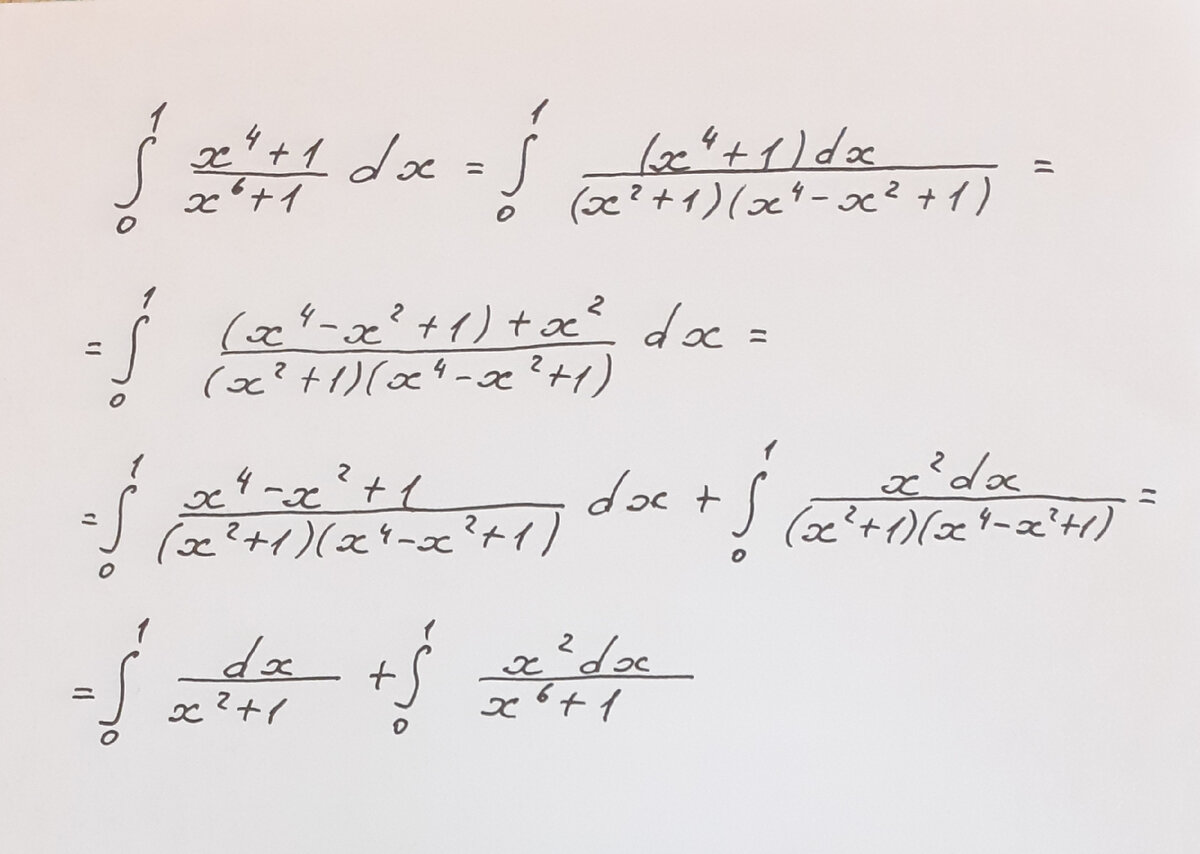 ∫₀¹ (x⁴+1)/(x⁶+1) dx = ∫₀¹ (x⁴+1)dx/((x²+1)(x⁴-x²+1)) =
= ∫₀¹ ((x⁴-x²+1)+x²)/((x²+1)(x⁴-x²+1)) dx =
= ∫₀¹ (x⁴-x²+1)/((x²+1)(x⁴-x²+1)) dx + ∫₀¹ x²dx/((x²+1)(x⁴-x²+1)) =
= ∫₀¹ dx/(x²+1) + ∫₀¹ x²dx/(x⁶+1)